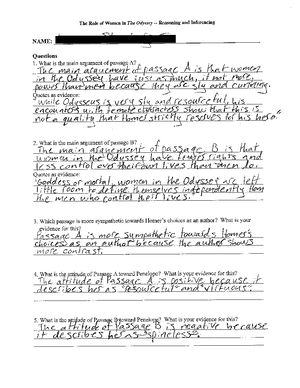 The Role of Women in The Odyssey – Reasoning and Inferencing
NAME:
Questions
1. What is the main argument of passage A?
The main arguement of passage A is that women
in the Odyssey have just as much, if not more,
power than men because they are sly and cunning.
Quotes as evidence:
"While Odysseus is very sly and resourceful, his
encounters with female characters show that this is
not a quality that Homer strictly reserves for his hero."
2. What is the main argument of passage B?
The main arguement of passage B is that
women in the Odyssey have fewer rights and
less control over their own lives than men do.
Quotes as evidence:
"Goddess or mortal, women in the Odyssey are left
little room to define themselves independently from
the men who control their lives."
3. Which passage is more sympathetic towards Homer's choices as an author? What is your
evidence for this?
Passage A is more sympathetic towards Homer's
choices as an author because the author shows
more contrast.
4. What is the attitude of Passage A toward Penelope? What is your evidence for this?
The attitude of Passage A is positive because it
describes her as "resourceful" and virtuous.
5. What is the attitude of Passage B toward Penelope? What is your evidence for this?
The attitude of Passage B is negative because
it describes her as "spineless".